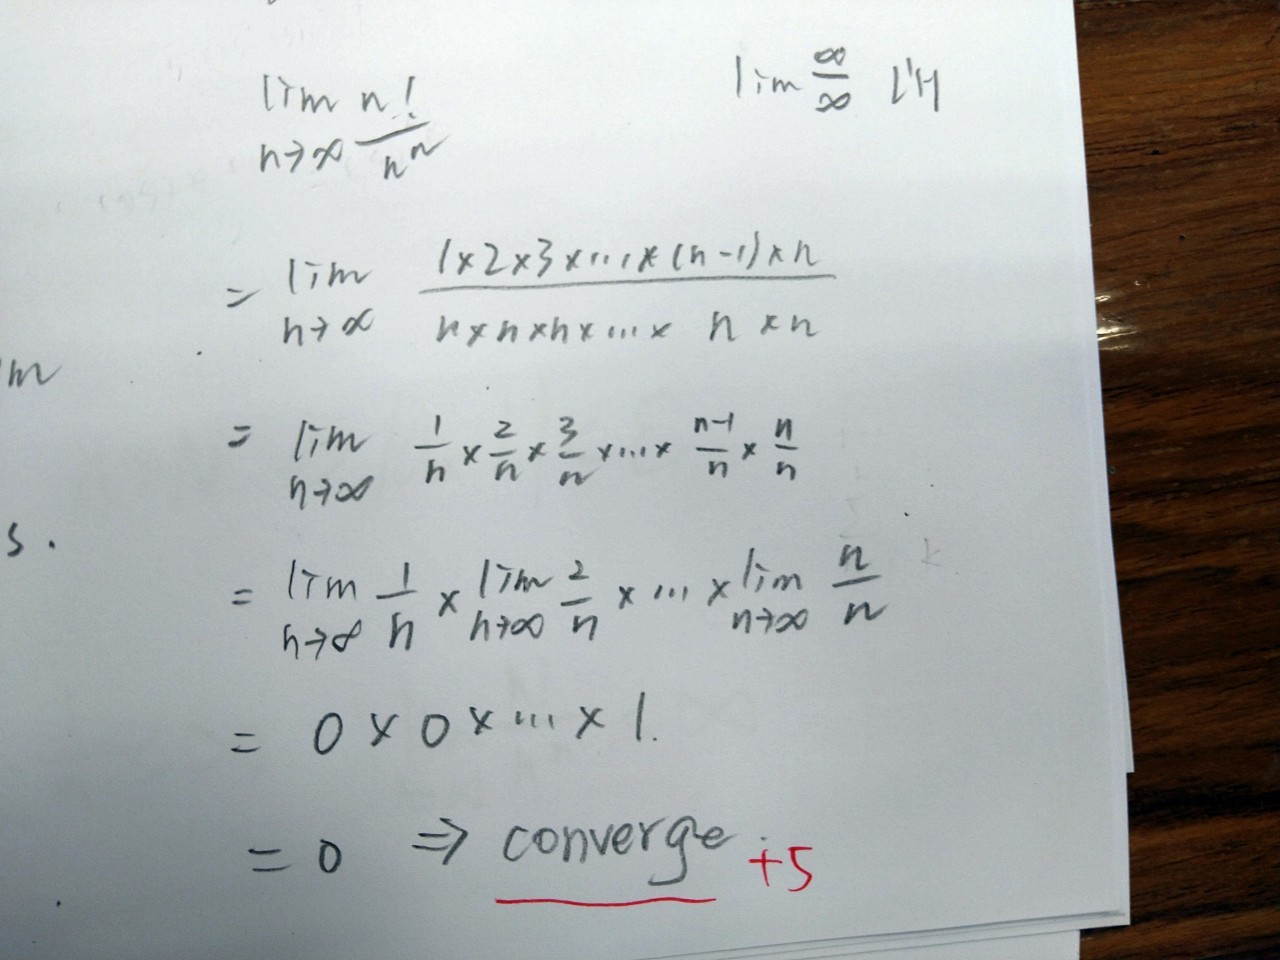 lim n!/n^n
n→∞
lim ∞/∞ L'H
= lim (1×2×3×...×(n-1)×n)/(n×n×n×...×n×n)
n→∞
m
= lim 1/n × 2/n × 3/n ×...× n-1/n × n/n
n→∞
s.
= lim 1/n × lim 2/n × ... × lim n/n
n→∞ n→∞ n→∞
= 0 × 0 × ... × 1.
= 0 ⇒ converge +5